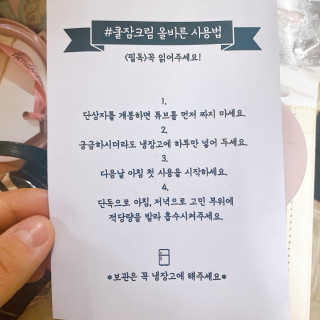 #쿨잠크림 올바른 사용법
(필독)꼭 읽어주세요!
1.
단상자를 개봉하면 튜브를 먼저 짜지 마세요.
2.
궁금하시더라도 냉장고에 하루만 넣어 두세요.
3.
다음날 아침 첫 사용을 시작하세요.
4.
단독으로 아침, 저녁으로 고민 부위에
적당량을 발라 흡수시켜주세요.
*보관은 꼭 냉장고에 해주세요*